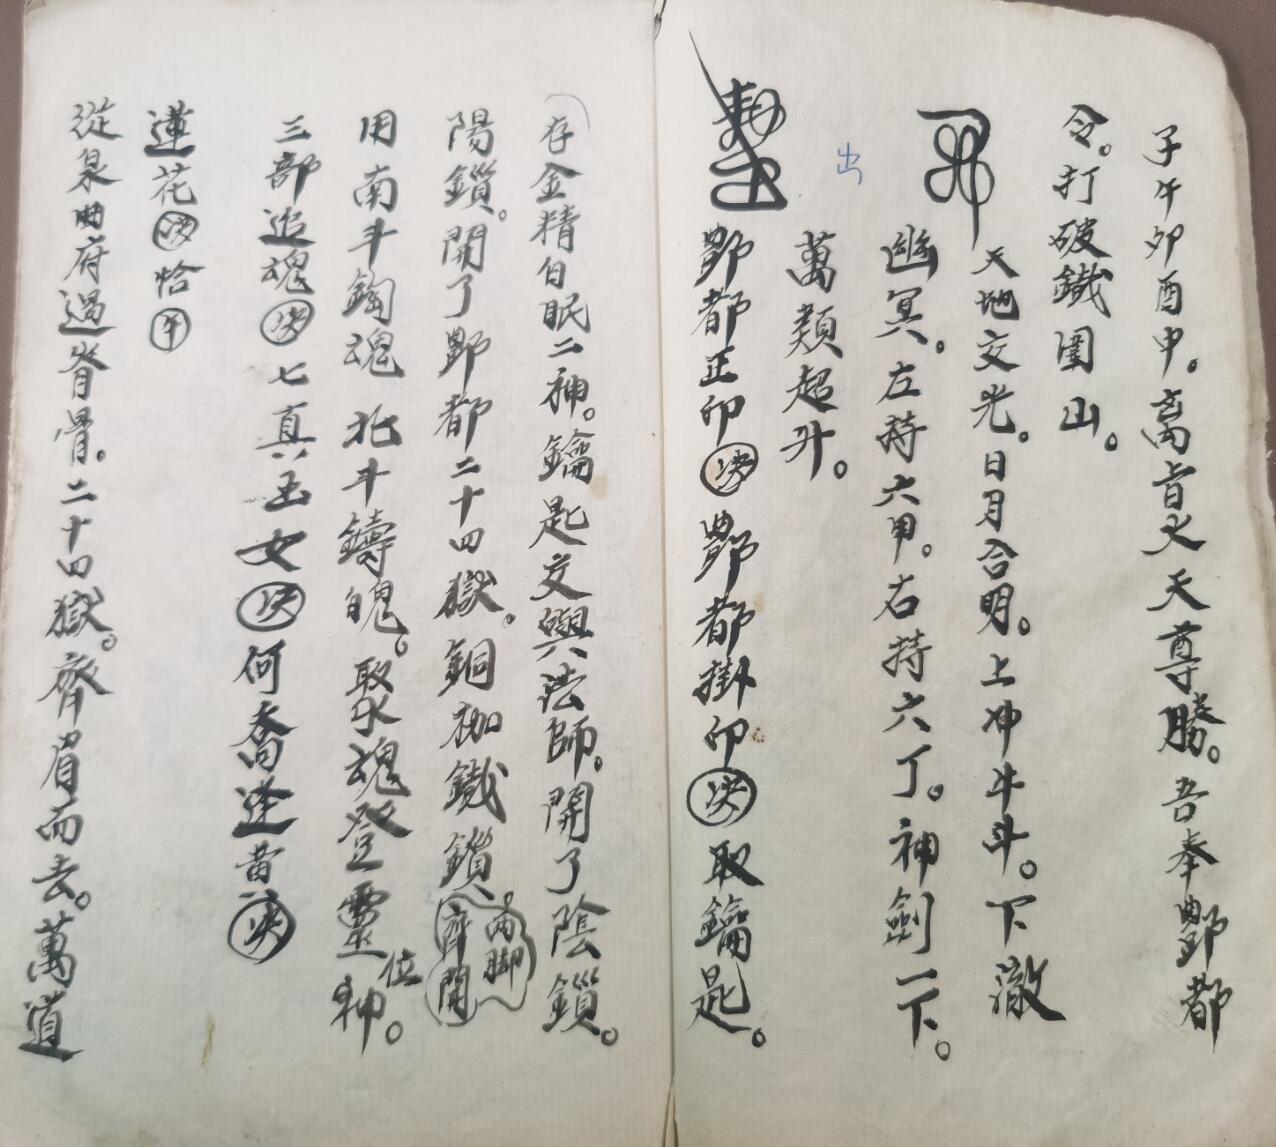 子午夘酉中。离盲天天尊勝。吾奉酆都
令。打破鐵圍山。
天地交光。日月合明。上冲牛斗。下澈
幽冥。左持六甲。右持六丁。神劍一下。
出
萬類超升。
酆都正印決酆都掛印決取鑰匙。
存金精白眠二神。鑰匙交與法師。開了陰鎖。
陽鎖。開了酆都二十四獄。銅枷鐵鎖、兩脚齊開。
用南斗鈎魂北斗鑄魄。聚魂登靈位神。
三部追魂決七真玉女決何喬逹昔決
蓮花決恰午
從泉曲府過脊骨。二十四獄。齊眉而去。萬道